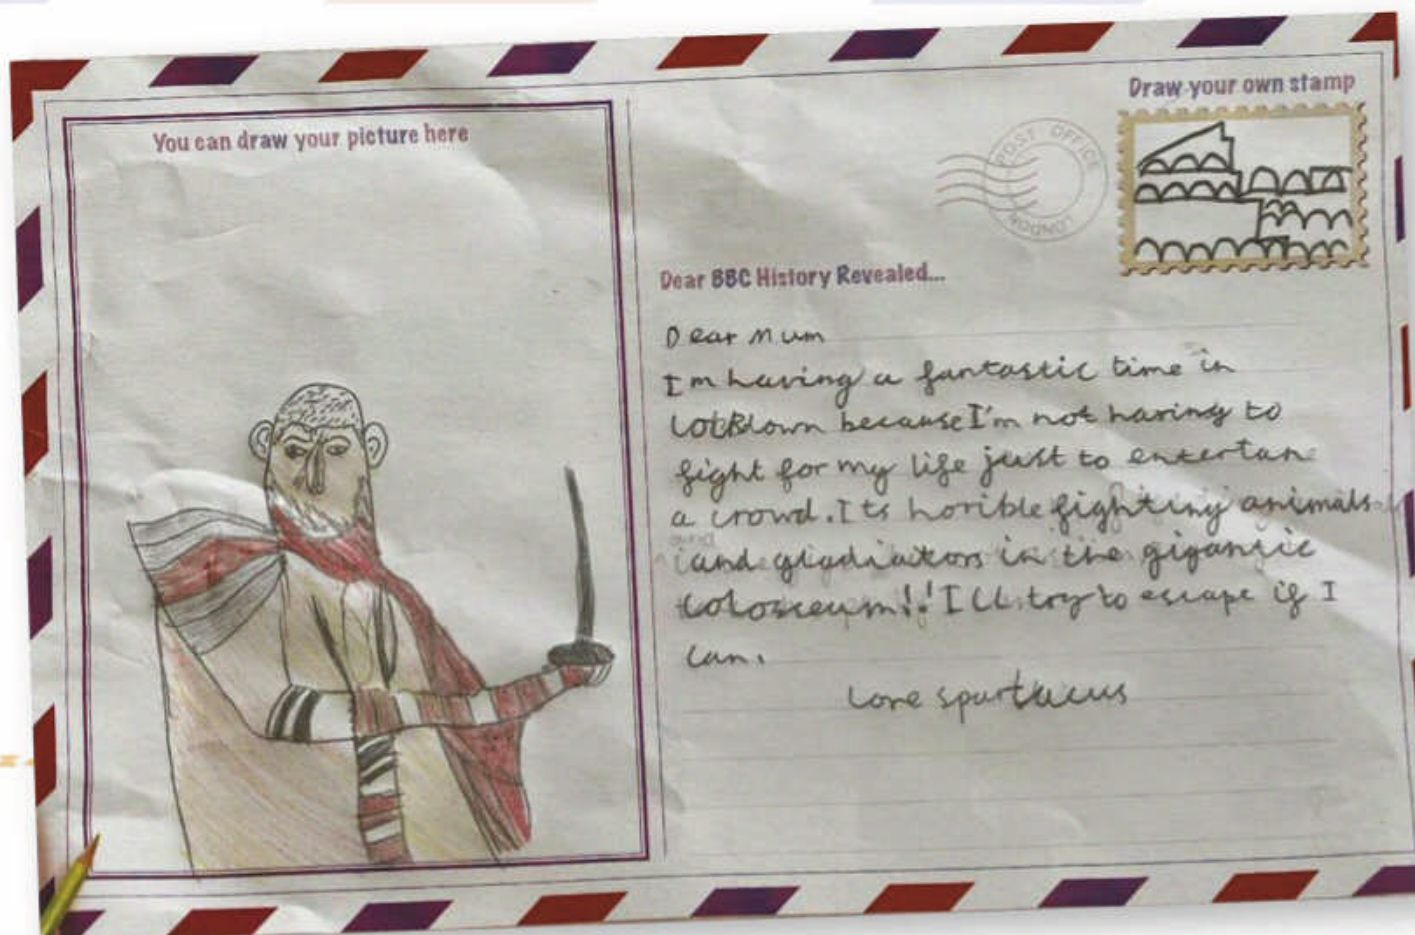 You can draw your picture here
Draw your own stamp
POST OFFICE
LONDON
Dear BBC History Revealed...
Dear Mum
Im having a fantastic time in
lockdown because I'm not having to
fight for my life just to entertan
a crowd. Its horible fighting animals
and gladiators in the gigantic
Colosseum!! I ll try to escape if I
can.
Love spartacus